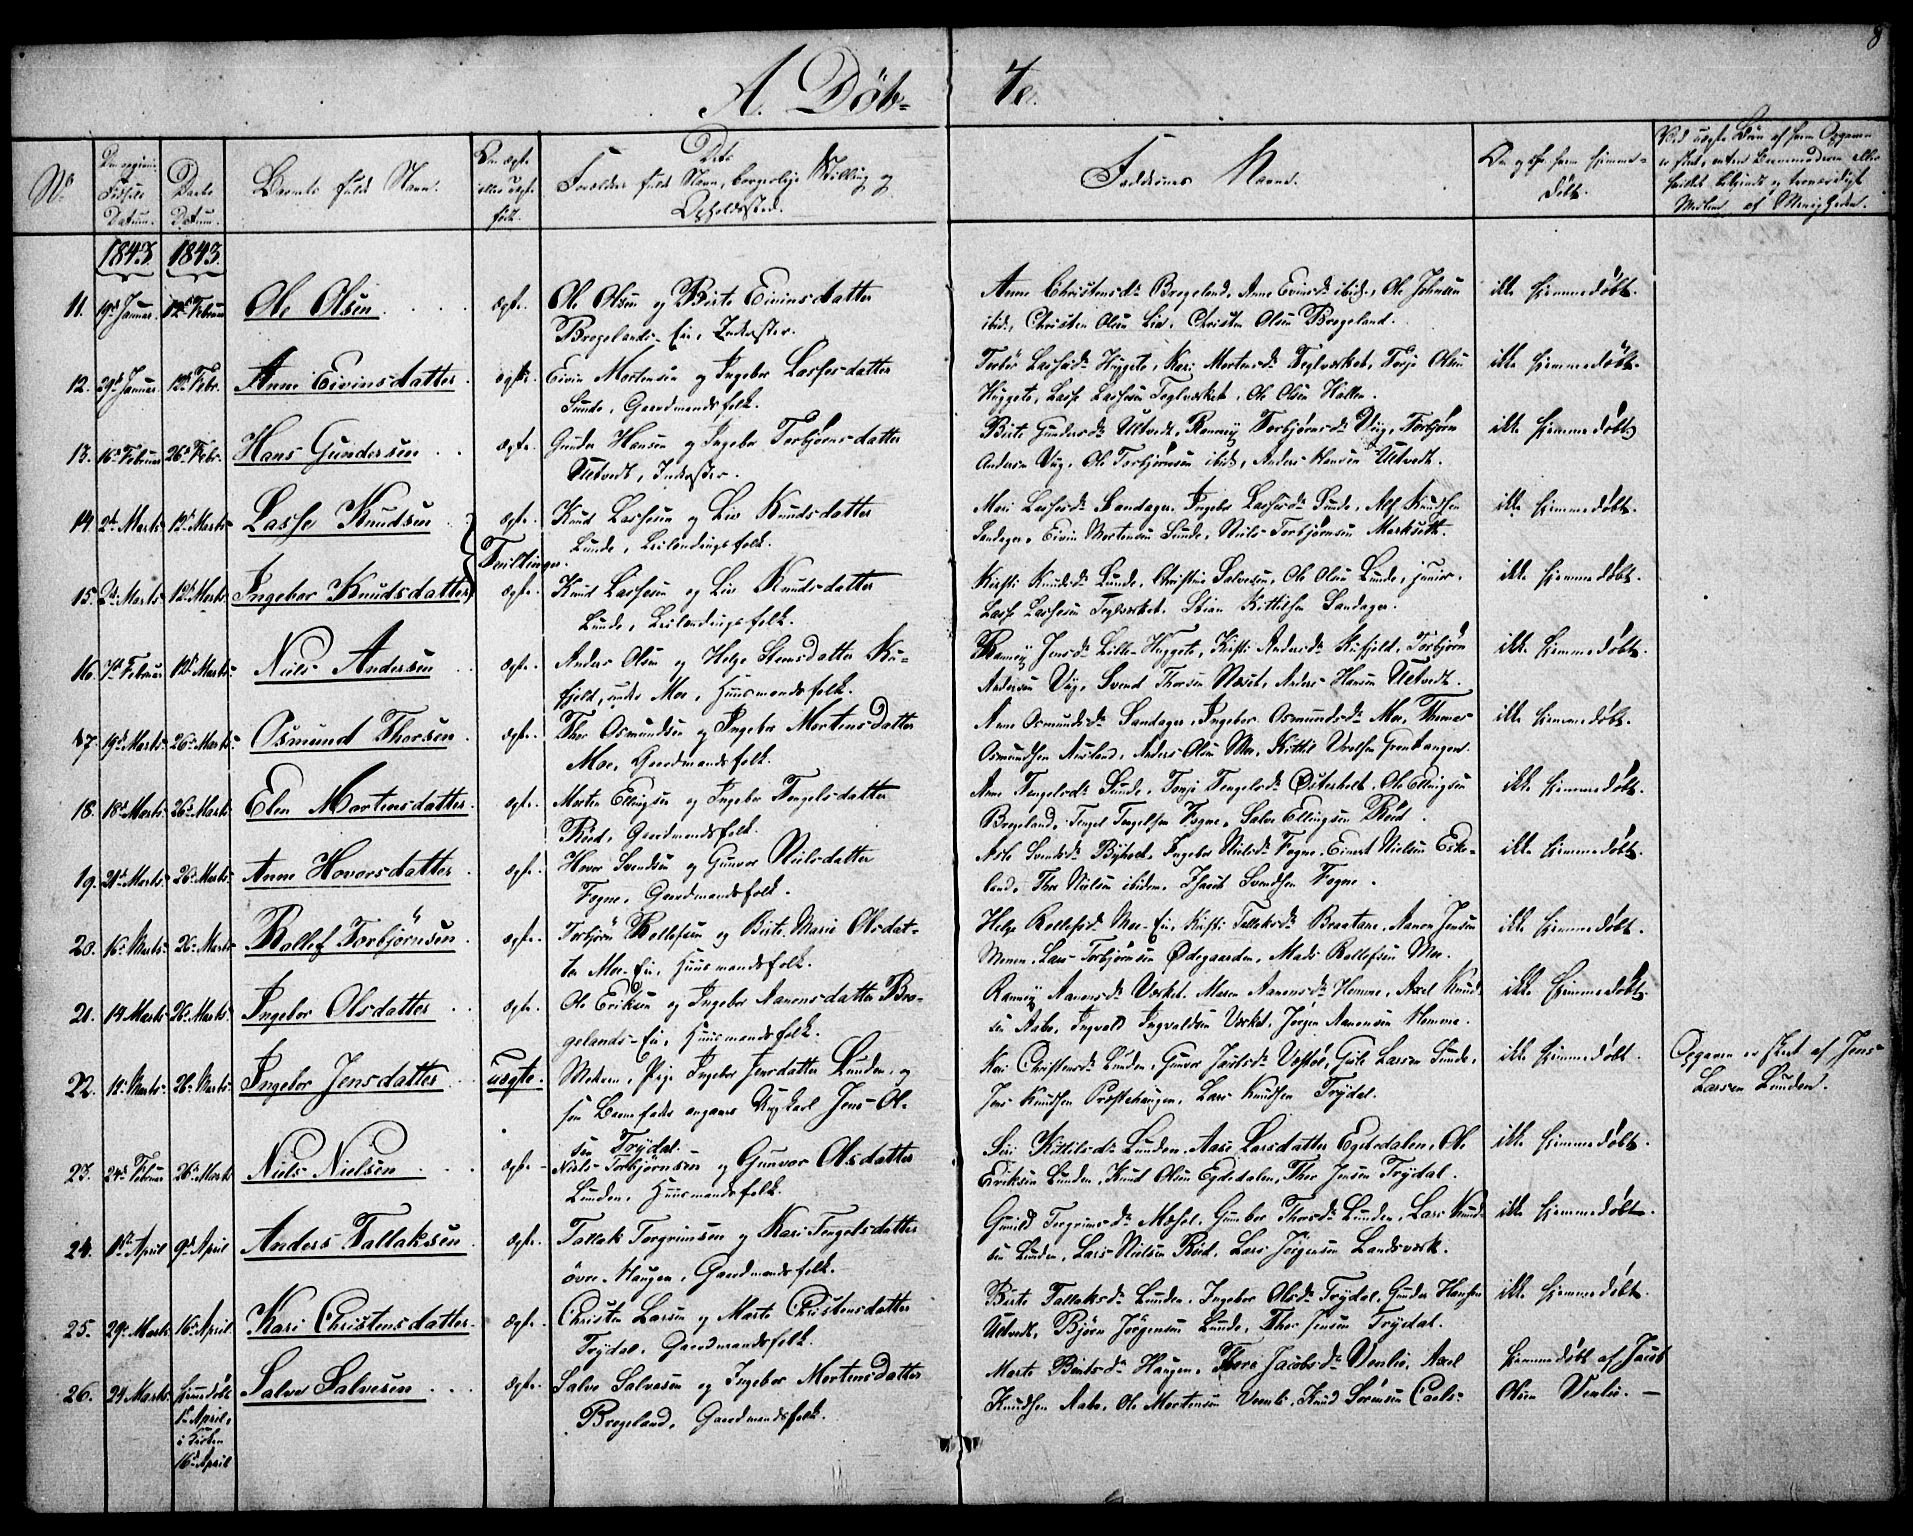 8
A. Döb- te.
No
Datum.
Daabs Datum.
Barnets fulde Navn.
Om ægte eller uægte født.
Dets Forældres fulde Navn, borgerlige Stilling og
Opholdssted.
Faddernes Navne.
Om og af hvem hjemme-
døbt.
1843. 1843.
11. 19de Januar. 12te Februar Ole Olsen ægte. Ole Olsen og Birte Eivinsdatter
Bregelands-Eie, Inderster.
Anne Christensdr Bregeland, Anne Evinsdr ibid., Ole Johnsen
ibid., Christen Olsen Lie, Christen Olsen Bregeland.
ikke hjemmedøbt.
12. 29de Januar 12te Febr. Anne Eivinsdatter ægte. Eivin Mortensen og Ingebor Lassesdatter
Lunde, Gaardmandsfolk.
Torbør Lassesdr Heggeto, Kari Mortensdr Teglverket, Terje Olsen
Heggeto, Lasse Lassesen Teglverket, Ole Olsen Hallen.
ikke hjemmedøbt.
13. 16de Februar 26de Febr. Hans Gundersen ægte. Gunder Hansen og Ingebor Torbjørnsdatter
Ultvedt, Inderster.
Birte Gundersdr Ultvedt, Ranneÿ Torbjørnsdr Vÿg, Torbjørn
Andersen Vÿg, Ole Torbjørnsen ibid., Anders Hansen Ultvedt.
ikke hjemmedøbt.
14. 2den Marts 12te Marts Lasse Knudsen ægte. Knud Lassesen og Liv Knudsdatter
Lunde, Leilendingsfolk.
Tvillinger.
Mari Lassesdr Sandager, Ingebor Lassesdr Lunde, Alf Knudsen
Sandager, Eivin Mortensen Lunde, Niels Torbjørnsen Marksæth.
ikke hjemmedøbt.
15. 2den Marts 12te Marts Ingebor Knudsdatter ægte. Knud Lassesen og Liv Knudsdatter
Lunde, Leilendingsfolk.
Kirsti Knudsdr Lunde, Christine Salvesen, Ole Olsen Lunde, junior,
Lasse Lassesen Teglverket, Stian Kittilsen Sandager.
ikke hjemmedøbt.
16. 7de Februar 12te Marts Niels Andersen ægte. Anders Olsen og Helge Stensdatter Ku-
fjeld, under Moe, Huusmandsfolk.
Ranneÿ Jensdr Lille-Heggeto, Kirsti Andersdr Kufjeld, Torbjørn
Andersen Vÿg, Svend Thorsen Næset, Anders Hansen Ultvedt.
ikke hjemmedøbt.
17. 19de Marts 26de Marts Osmund Thorsen ægte. Thor Osmundsen og Ingebor Mortensdatter
Moe, Gaardmandsfolk.
Anne Osmundsdr Sandager, Ingebor Osmundsdr Moe, Thomas
Osmundsen Ausland, Anders Olsen Moe, Kittil Vrolsen Grentangen.
ikke hjemmedøbt.
18. 18de Marts 26de Marts Elen Mortensdatter ægte. Morten Ellingsen og Ingebor Tengelsdatter
Røed, Gaardmandsfolk.
Anne Tengelsdr Lunde, Tonje Tengelsdr Østerholt, Ole Ellingsen
Bregeland, Tengel Tengelsen Fogne, Salve Ellingsen Røed.
ikke hjemmedøbt.
19. 21de Marts 26de Marts Anne Hovorsdatter ægte. Hover Svendsen og Gunvor Nielsdatter
Fogne, Gaardmandsfolk.
Asle Svendsdr Ingebor Nielsdr Fogne, Einert Nielsen Eske-
land, Thor Nielsen ibidem, Svendsen Fogne.
ikke hjemmedøbt.
20. 16de Marts 26de Marts Rollef Torbjörnsen ægte. Torbjörn Rollefsen og Birte Marie Olsdat-
ter Moe-Eie, Huusmandsfolk.
Helge Rollefsdr Moe-Eie, Kirsti Tallaksdr Braatane, Aanon Jensen
Monen, Lars Torbjørnsen Ødegaarden, Mads Rollefsen Moe.
ikke hjemmedøbt.
21. 14 Marts 26de Marts Ingebor Olsdatter ægte. Ole Eriksen og Ingebor Aanonsdatter Bre-
gelands-Eie, Huusmandsfolk.
Ranneÿ Aanonsdr Verket, Maren Aanonsdr Homme, Axel Knud-
sen Aabo, Ingvald Ingvaldsen Verket, Jørgen Aanonsen Homme.
ikke hjemmedøbt.
22. 12te Marts 26de Marts Ingebor Jensdatter uægte. Moderen, Pige Ingebor Jensdatter Lunden, og
som Barnefader angaaes Ungkarl Jens Ol-
sen Trÿdal.
Kari Christensdr Lunden, Gunvor Jacobsdr Vestøl, Lassen Lunde,
Jens Knudsen Præstehaugen, Lars Knudsen Trÿdal.
ikke hjemmedøbt.
Opgaven er skeet af Jens
Larsen Lunden.
23. 24de Februar 26de Marts Niels Nielsen ægte Niels Torbjörnsen og Gunvor Olsdatter
Lunden, Huusmandsfolk.
Siri Kittilsdr Lunden, Aase Larsdatter Egdedalen, Ole
Eriksen Lunden, Knud Olsen Egdedalen, Thor Jensen Trÿdal.
ikke hjemmedøbt.
24. 1ste April 9de April Anders Tallaksen ægte. Tallak Torgrimsen og Kari Tengelsdatter
övre-Haugen, Gaardmandsfolk.
Gunild Torgrimsdr Mæsel, Gunbor Thorsdr Lunden, Lars Knud-
sen Lunden, Lars Nielsen Røed, Lars Jörgensen Landsverk.
ikke hjemmedøbt.
25. 29de Marts 16de April Kari Christensdatter ægte. Christen Larsen og Marte Christensdatter
Trÿdal, Gaardmandsfolk.
Birte Tallaksdr Lunden, Ingebor Olsdr Trÿdal, Gunder Hansen
Ultvedt, Björn Jörgensen Lunde, Thor Jensen Trÿdal.
ikke hjemmedøbt.
26. 24 Marts hjemmedøbt
1ste April,
i Kirken
16de April
Salve Salvesen ægte. Salve Salvesen og Ingebor Mortensdatter
Bregeland, Gaardmandsfolk.
Marte Berntsdr Haugen, Thore Jacobsdr Venlie, Axel
Knudsen Aabo, Ole Mortensen Knud Sörensen
hjemmedøbt af Jacob
Olsen Venlie.